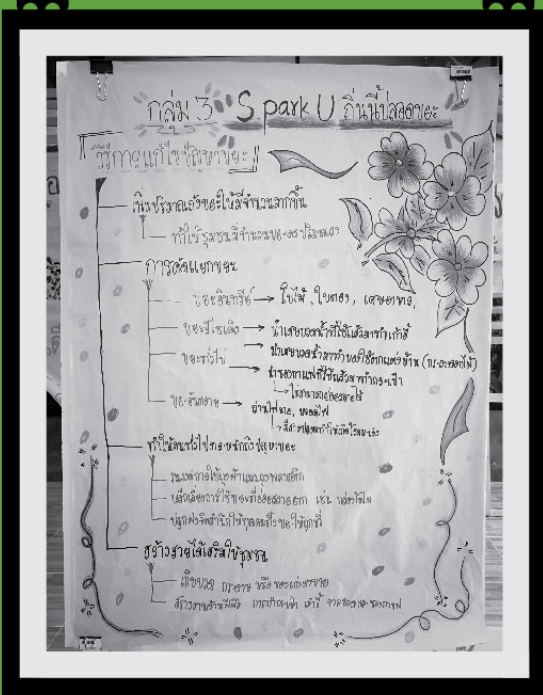 กลุ่ม 3 Spark U ถิ่นนี้ปลอดขยะ
วิธีการแก้ไขปัญหาขยะ
เพิ่มปริมาณถังขยะให้มีจำนวนมากขึ้น
ทำให้ชุมชนมีจำนวนขยะลด
การคัดแยกขยะ
ขยะอินทรีย์ → ใบไม้, ใบตอง, เศษอาหาร,
ขยะรีไซเคิล → นำเศษขวดน้ำที่ใช้แล้วมาทำเก้าอี้
นำเศษขวดน้ำมาทำของใช้ตกแต่งบ้าน (กระถางดอกไม้)
ขยะทั่วไป → นำซองกาแฟที่ใช้แล้วมาทำกระเป๋า
ไม่สามารถย่อยสลายได้
ขยะอันตราย → ถ่านไฟฉาย, หลอดไฟ
ทำให้คนทั่วไปตระหนักถึงปัญหาขยะ
รณรงค์การใช้ถุงผ้าแทนถุงพลาสติก
หลีกเลี่ยงการใช้ขยะที่ย่อยสลายยาก เช่น กล่องโฟม
ปลูกฝังจิตสำนึกให้ทุกคนทิ้งขยะให้ถูกที่
สร้างรายได้เสริมให้ชุมชน
เก็บขวด กระดาษ หรือของเก่ามาขาย